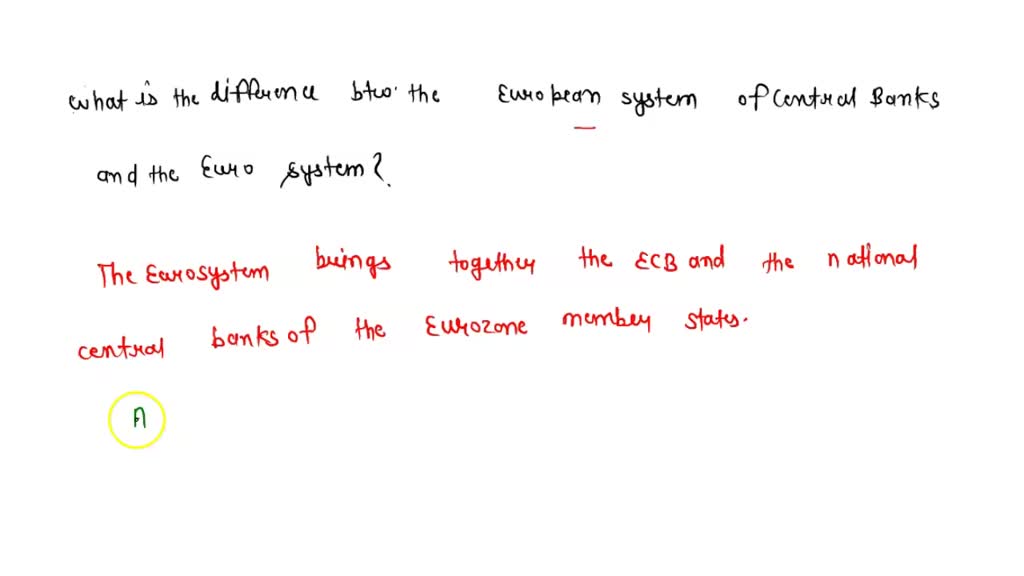 what is the difference btw. the European system of Central Banks
and the Euro system?
The Eurosystem brings together the ECB and the national
central banks of the Eurozone member states.
A